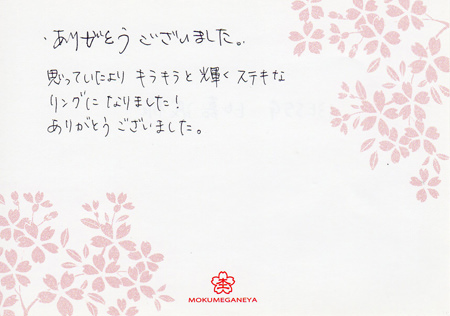 ・ありがとうございました。
思っていたより キラキラと輝く ステキな
リングに なりました!
ありがとうございました。
MOKUMEGANEYA